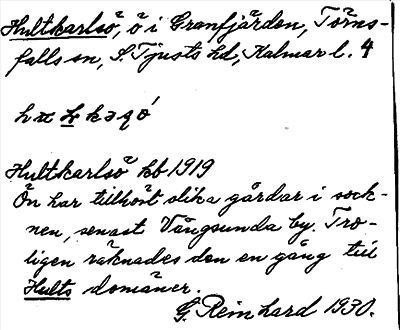 Hultkarlsö, ö i Granfjärden, Törns-
falls sn, S. Tjusts hd, Kalmar l. 4
Hultkarlsö kb 1919
Ön har tillhört olika gårdar i sock-
nen, senast Vångsunda by. Tro-
ligen räknades den en gång till
Hults domäner.
G. Reinhard 1930.